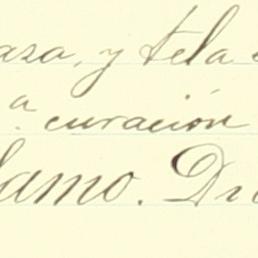 asa, y tela
a. curación
lamo. Di